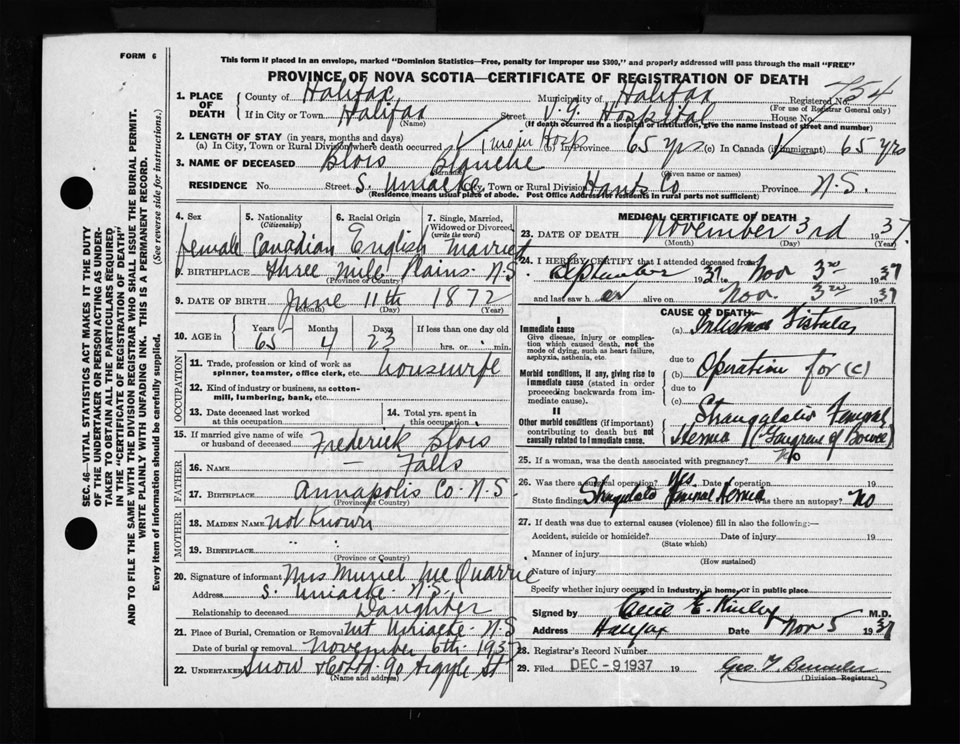 FORM 6
This form if placed in an envelope, marked "Dominion Statistics—Free, penalty for improper use $300," and properly addressed will pass through the mail "FREE"
PROVINCE OF NOVA SCOTIA—CERTIFICATE OF REGISTRATION OF DEATH
1. PLACE OF DEATH County of Halifax Municipality of Halifax Registered No. 754
(For use of Registrar General only)
If in City or Town Halifax Street V. G. Hospital House No.
(Name) (If death occurred in a hospital or institution, give the name instead of street and number)
2. LENGTH OF STAY (in years, months and days)
(a) In City, Town or Rural Division where death occurred Hosp (b) In Province 65 yrs (c) In Canada (if immigrant) 65 yrs
3. NAME OF DECEASED Blois Blanche
(Surname) (Given name or names)
RESIDENCE No. Street S. Uniacke City, Town or Rural Division Hants Co Province N.S.
(Residence means usual place of abode. Post Office Address for residents in rural parts not sufficient)
4. Sex female
5. Nationality (Citizenship) Canadian
6. Racial Origin English
7. Single, Married, Widowed or Divorced (write the word) Married
8. BIRTHPLACE Three Mile Plains. N.S
(Province or Country)
9. DATE OF BIRTH June 11th 1872
(Month) (Day) (Year)
10. AGE in Years 65 Months 4 Days 23 If less than one day old
hrs. or min.
OCCUPATION
11. Trade, profession or kind of work as spinner, teamster, office clerk, etc. housewife
12. Kind of industry or business, as cotton-mill, lumbering, bank, etc.
13. Date deceased last worked at this occupation
14. Total yrs. spent in this occupation
15. If married give name of wife or husband of deceased Frederick Blois
FATHER
16. NAME — Falls
17. BIRTHPLACE Annapolis Co. N.S.
(Province or Country)
MOTHER
18. MAIDEN NAME not Known
19. BIRTHPLACE " "
(Province or Country)
20. Signature of informant Mrs Muriel McQuarrie
Address S. Uniacke N.S.
Relationship to deceased Daughter
21. Place of Burial, Cremation or Removal Mt Uniacke N.S
Date of burial or removal November 6th 1937
22. UNDERTAKER Snow & Co Ltd 90 Argyle St
(Name and address)
MEDICAL CERTIFICATE OF DEATH
23. DATE OF DEATH November 3rd 1937.
(Month) (Day) (Year)
24. I HEREBY CERTIFY that I attended deceased from
September 1937 to Nov 3rd 1937
and last saw her alive on Nov. 3rd 1937
CAUSE OF DEATH
I
Immediate cause
Give disease, injury or complication which caused death, not the mode of dying, such as heart failure, asphyxia, asthenia, etc.
(a) Intestinal Fistula
due to
Morbid conditions, if any, giving rise to immediate cause (stated in order proceeding backwards from immediate cause).
(b) Operation for (c)
due to
(c) Strangulated Femoral Hernia (Gangrene of Bowel)
II
Other morbid conditions (if important) contributing to death but not causally related to immediate cause.
25. If a woman, was the death associated with pregnancy? No
26. Was there a surgical operation? Yes. Date of operation 19
State findings Strangulated Femoral Hernia Was there an autopsy? No
27. If death was due to external causes (violence) fill in also the following:—
Accident, suicide or homicide? Date of injury 19
(State which)
Manner of injury
(How sustained)
Nature of injury
Specify whether injury occurred in Industry, in home, or in public place
Signed by E. Kinley M.D.
Address Halifax Date Nov 5 1937
28. Registrar's Record Number
29. Filed DEC - 9 1937 19 Geo.
(Division Registrar)
SEC. 46—VITAL STATISTICS ACT MAKES IT THE DUTY
OF THE UNDERTAKER OR PERSON ACTING AS UNDER-
TAKER TO OBTAIN ALL THE PARTICULARS REQUIRED
IN THE "CERTIFICATE OF REGISTRATION OF DEATH"
AND TO FILE THE SAME WITH THE DIVISION REGISTRAR WHO SHALL ISSUE THE BURIAL PERMIT.
WRITE PLAINLY WITH UNFADING INK. THIS IS A PERMANENT RECORD.
Every item of information should be carefully supplied. (See reverse side for instructions.)